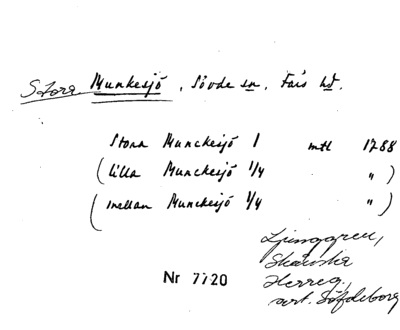 Stora Munkesjö, Sövde sn, Färs hd.
Stora Munckesjö 1 mtl 1788
(lilla Munckesjö 1/4 " )
(mellan Munckesjö 1/4 " )
Ljunggren,
Skånska
Herreg.
art. Söfdeborg
Nr 7720